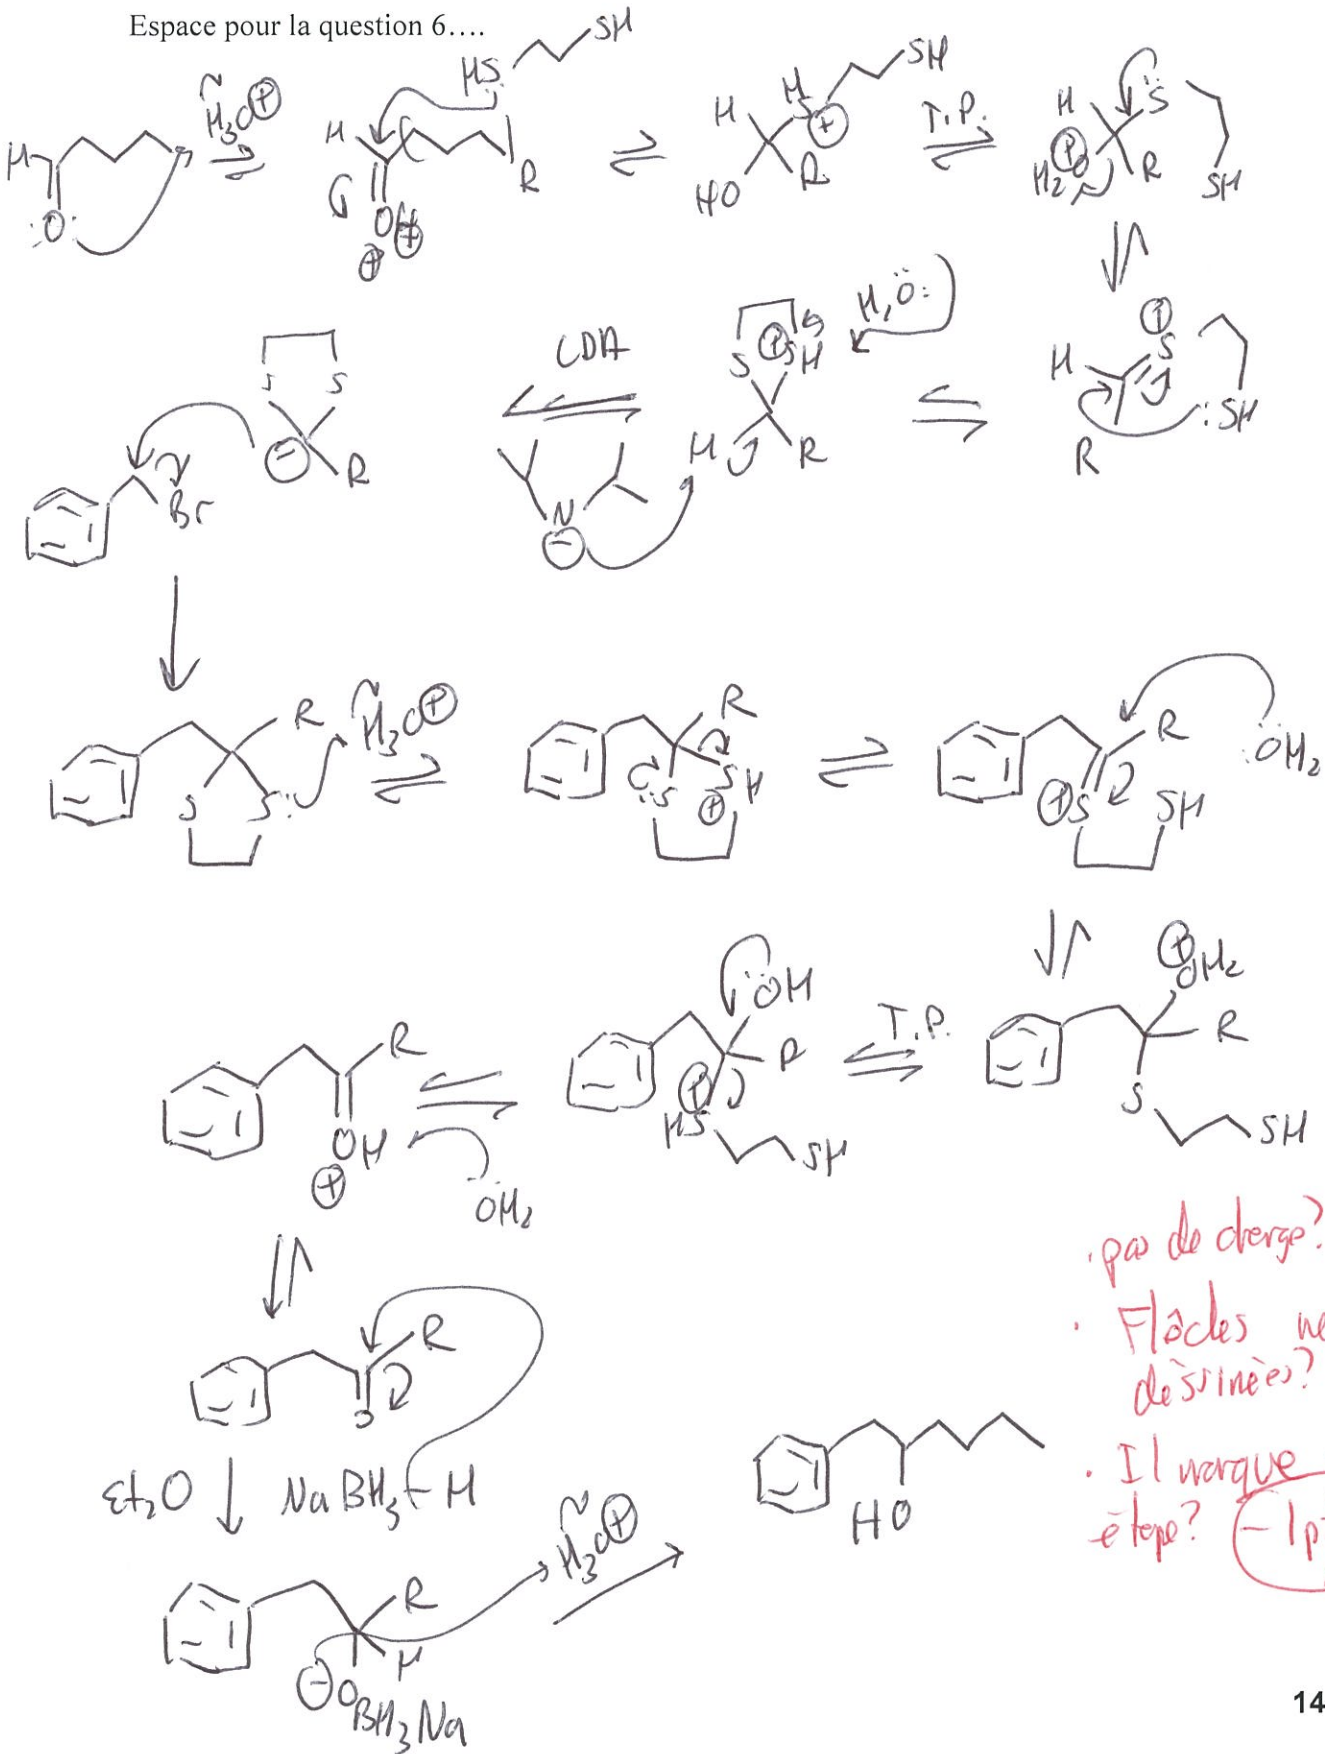 Espace pour la question 6….
SH
HS
H₃O⊕
H
O
H
R
OH
⊕
H
HO
H
S
⊕
R
SH
T.P.
H
S
⊕
H₂O
R
SH
⊕
S
H
R
SH
H₂O:
S
⊕
SH
H
R
LDA
N
⊖
S
S
⊖
R
Br
R
S
S:
H₃O⊕
R
:S
SH
⊕
R
⊕S
SH
:ÖH₂
⊕
OH₂
R
S
SH
T.P.
ÖH
R
⊕
HS
SH
R
OH
⊕
ÖH₂
R
O
Et₂O
NaBH₃–H
R
H
⊖O
BH₃Na
H₃O⊕
HO
· pas de charge?
· Flèches
dessinées?
· Il manque
étape? -1p
14